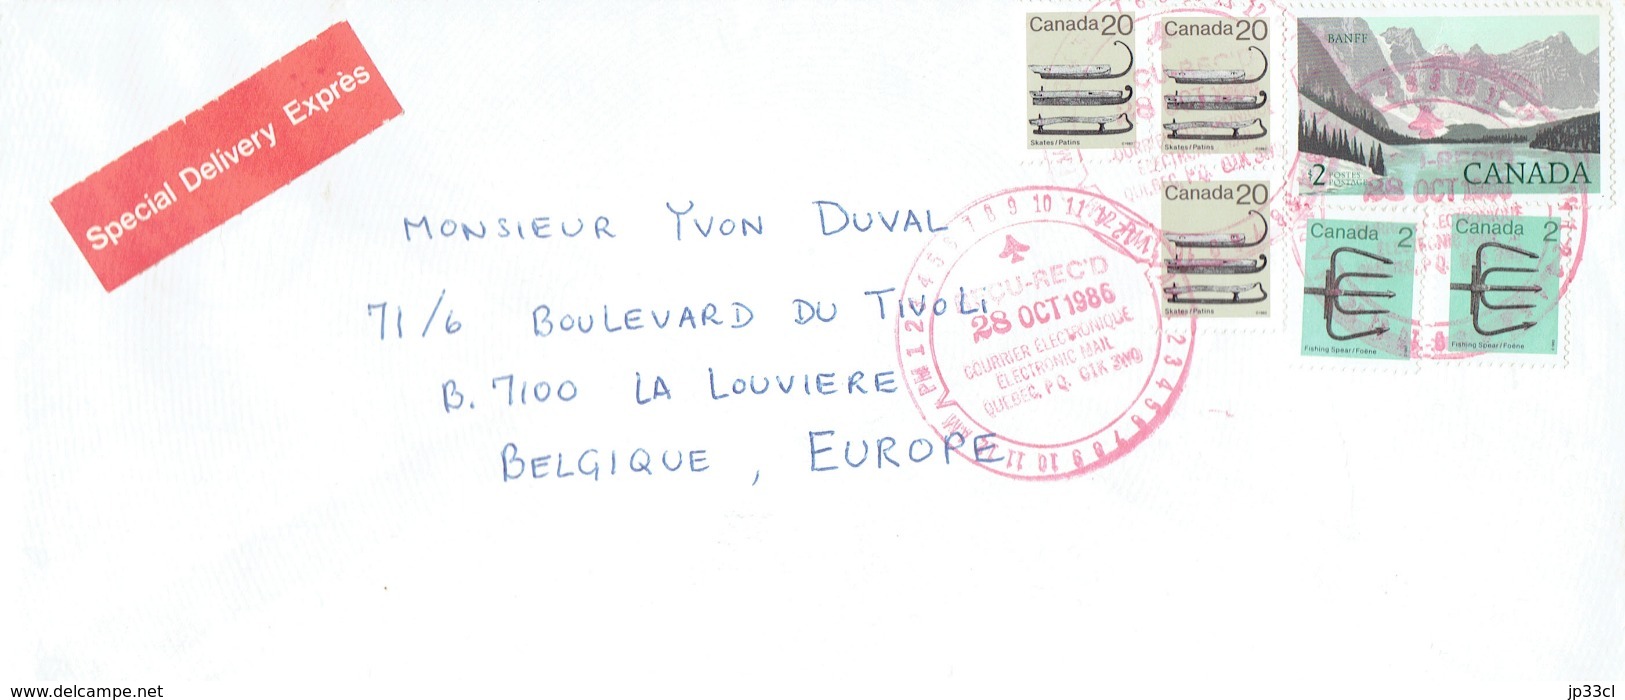 Special Delivery Exprès
Canada 20
Skates / Patins
Canada 20
Skates / Patins
Canada 20
Skates / Patins
BANFF
$2 POSTES POSTAGE
CANADA
Canada 2
Fishing Spear / Foëne
Canada 2
Fishing Spear / Foëne
REÇU-REC'D
28 OCT 1986
COURRIER ÉLECTRONIQUE
ELECTRONIC MAIL
QUEBEC, P.Q. G1K 3W0
MONSIEUR YVON DUVAL
71/6 BOULEVARD DU TIVOLI
B. 7100 LA LOUVIERE
BELGIQUE, EUROPE
www.delcampe.net
jp33cl